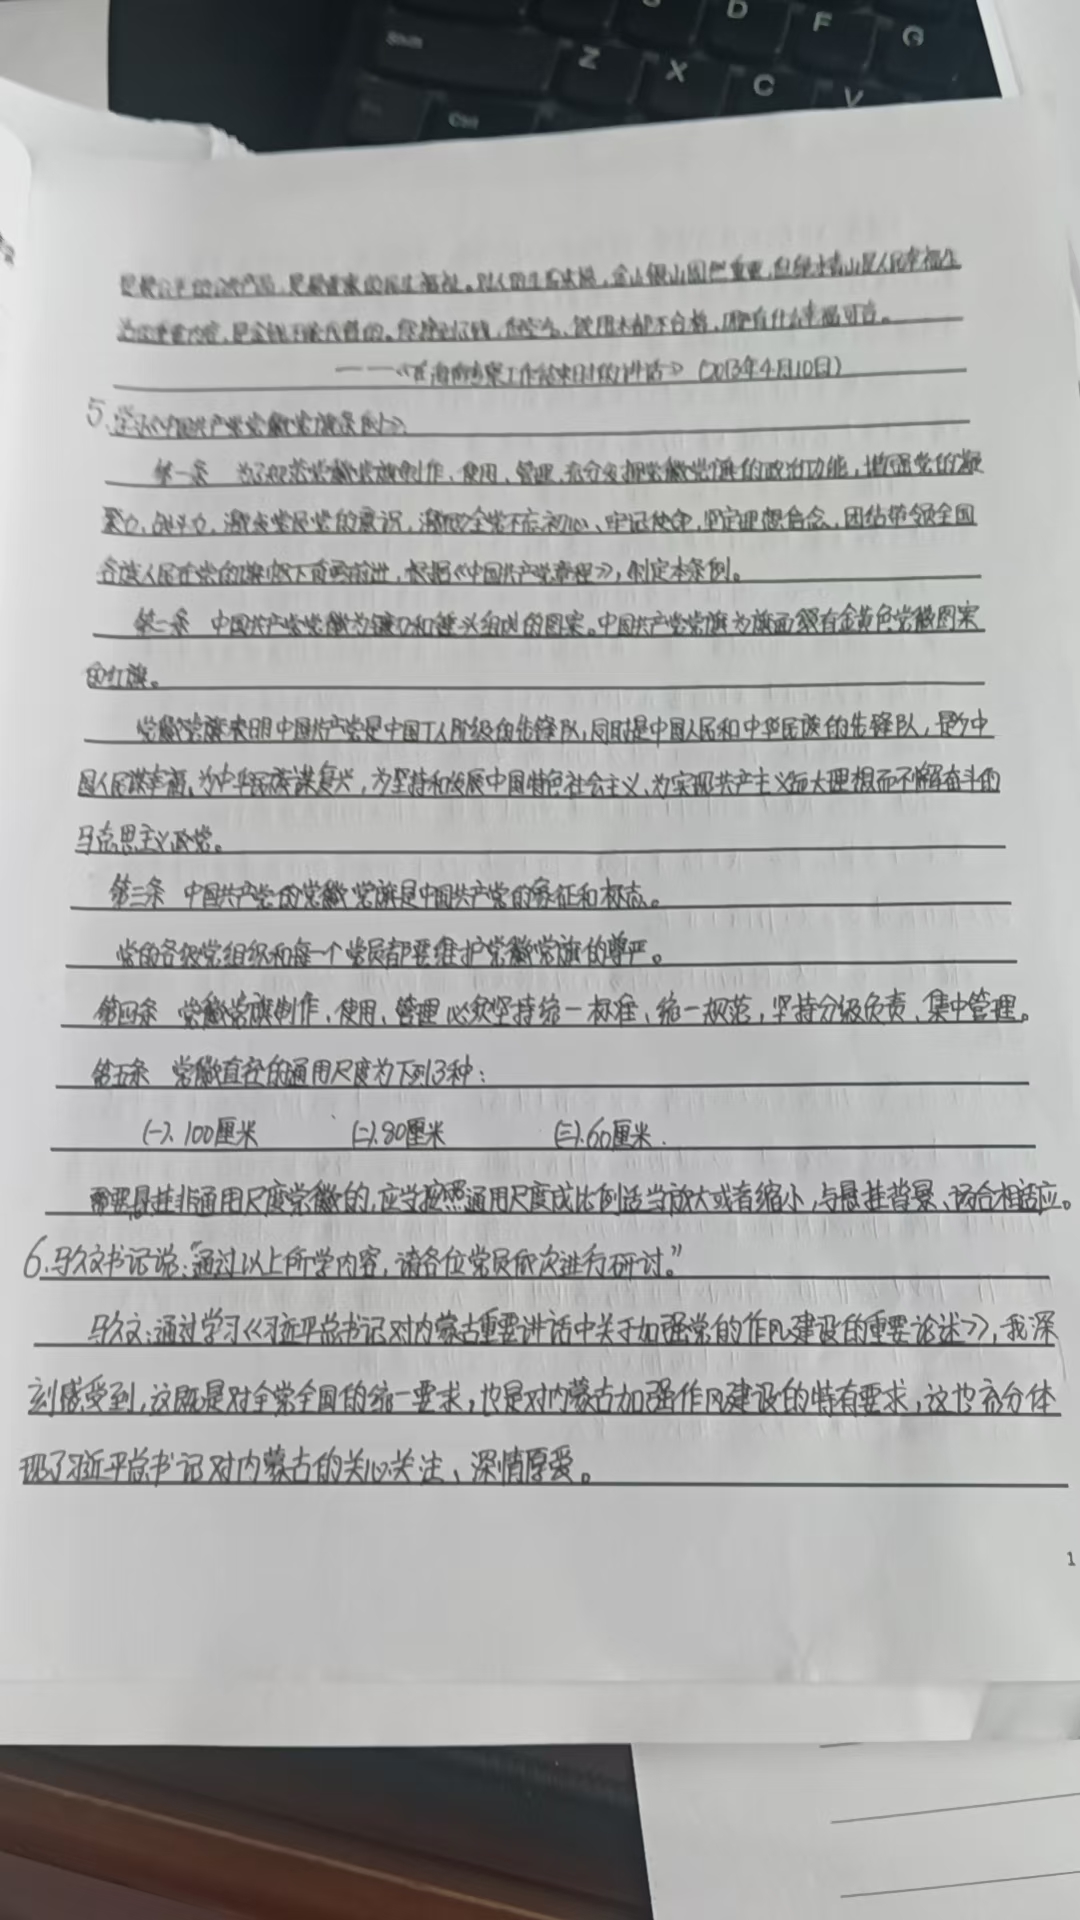 D F G
Z X C V
Ctrl
是最公平的公共产品,是最普惠的民生福祉。对人的生存来说,金山银山固然重要,但绿水青山是人民幸福生
活的重要内容,是金钱不能代替的。你挣到了钱,但空气、饮用水都不合格,哪有什么幸福可言。
——《在海南考察工作结束时的讲话》(2013年4月10日)
5.学习《中国共产党党徽党旗条例》
第一条 为了规范党徽党旗制作、使用、管理,充分发挥党徽党旗的政治功能,增强党的凝
聚力、战斗力,激发党员党的意识,激励全党不忘初心、牢记使命,坚定理想信念,团结带领全国
各族人民在党的旗帜下奋勇前进,根据《中国共产党章程》,制定本条例。
第二条 中国共产党党徽为镰刀和锤头组成的图案。中国共产党党旗为旗面缀有金黄色党徽图案
的红旗。
党徽党旗表明中国共产党是中国工人阶级的先锋队,同时是中国人民和中华民族的先锋队,是为中
国人民谋幸福,为中华民族谋复兴,为坚持和发展中国特色社会主义,为实现共产主义远大理想而不懈奋斗的
马克思主义政党。
第三条 中国共产党的党徽党旗是中国共产党的象征和标志。
党的各级党组织和每一个党员都要维护党徽党旗的尊严。
第四条 党徽党旗制作、使用、管理必须坚持统一标准、统一规范,坚持分级负责、集中管理。
第五条 党徽直径的通用尺度为下列3种:
(一). 100厘米 (二). 80厘米 (三). 60厘米.
需要悬挂非通用尺度党徽的,应当按照通用尺度成比例适当放大或者缩小,与悬挂背景、场合相适应。
6.马久文书记说:“通过以上所学内容,请各位党员依次进行研讨。”
马久文:通过学习《习近平总书记对内蒙古重要讲话中关于加强党的作风建设的重要论述》,我深
刻感受到,这既是对全党全国的统一要求,也是对内蒙古加强作风建设的特有要求,这也充分体
现了习近平总书记对内蒙古的关心关注、深情厚爱。
1